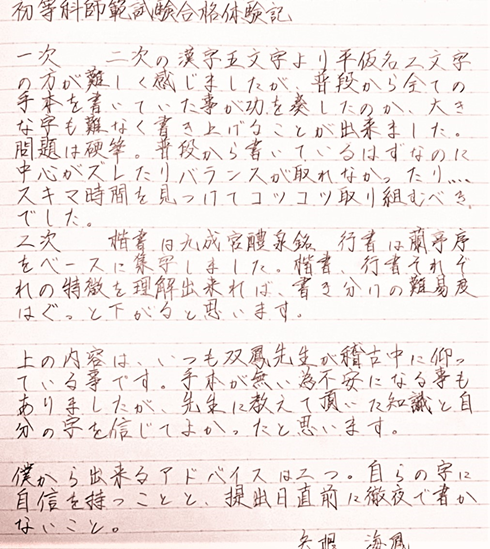 初等科師範試験合格体験記
一次　二次の漢字五文字より平仮名二文字
の方が難しく感じましたが、普段から全ての
手本を書いていた事が功を奏したのか、大き
な字も難なく書き上げることが出来ました。
問題は硬筆。普段から書いているはずなのに
中心がズレたりバランスが取れなかったり…。
スキマ時間を見つけてコツコツ取り組むべき
でした。
二次　楷書は九成宮醴泉銘、行書は蘭亭序
をベースに集字しました。楷書、行書それぞ
れの特徴を理解出来れば、書き分けの難易度
はぐっと下がると思います。
上の内容は、いつも双鳳先生が稽古中に仰っ
ている事です。手本が無い為不安になる事も
ありましたが、先生に教えて頂いた知識と自
分の字を信じてよかったと思います。
僕から出来るアドバイスは二つ。自らの字に
自信を持つことと、提出日直前に徹夜で書か
ないこと。
矢根　海風